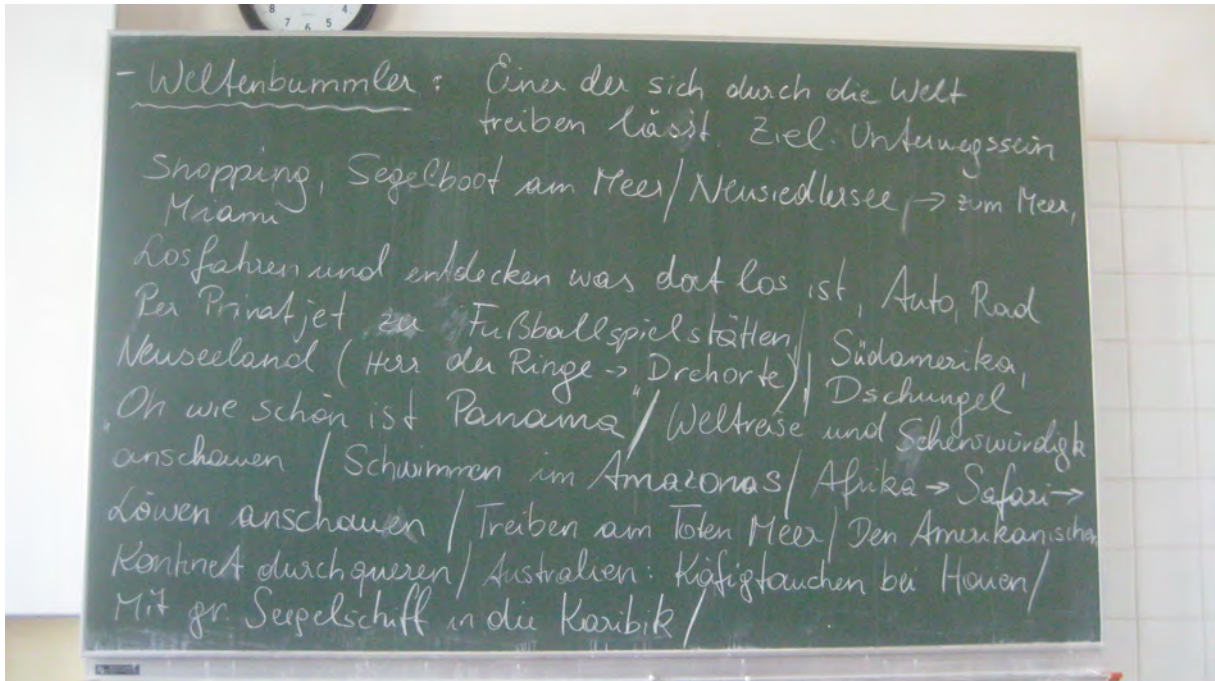 8 7 6 5 4
- Weltenbummler: Einer der sich durch die Welt
treiben lässt. Ziel: Unterwegssein
Shopping, Segelboot am Meer/Neusiedlersee, → zum Meer,
Miami
Losfahren und entdecken was dort los ist, Auto, Rad
Per Privatjet zu Fußballspielstätten/ Südamerika,
Neuseeland (Herr der Ringe → Drehorte)/ Dschungel
„Oh wie schön ist Panama"/ Weltreise und Sehenswürdigk
anschauen / Schwimmen im Amazonas/ Afrika → Safari →
Löwen anschauen / Treiben am Toten Meer/ Den Amerikanischen
Kontinet durchqueren/ Australien: Käfigtauchen bei Haien/
Mit gr. Seegelschiff in die Karibik/